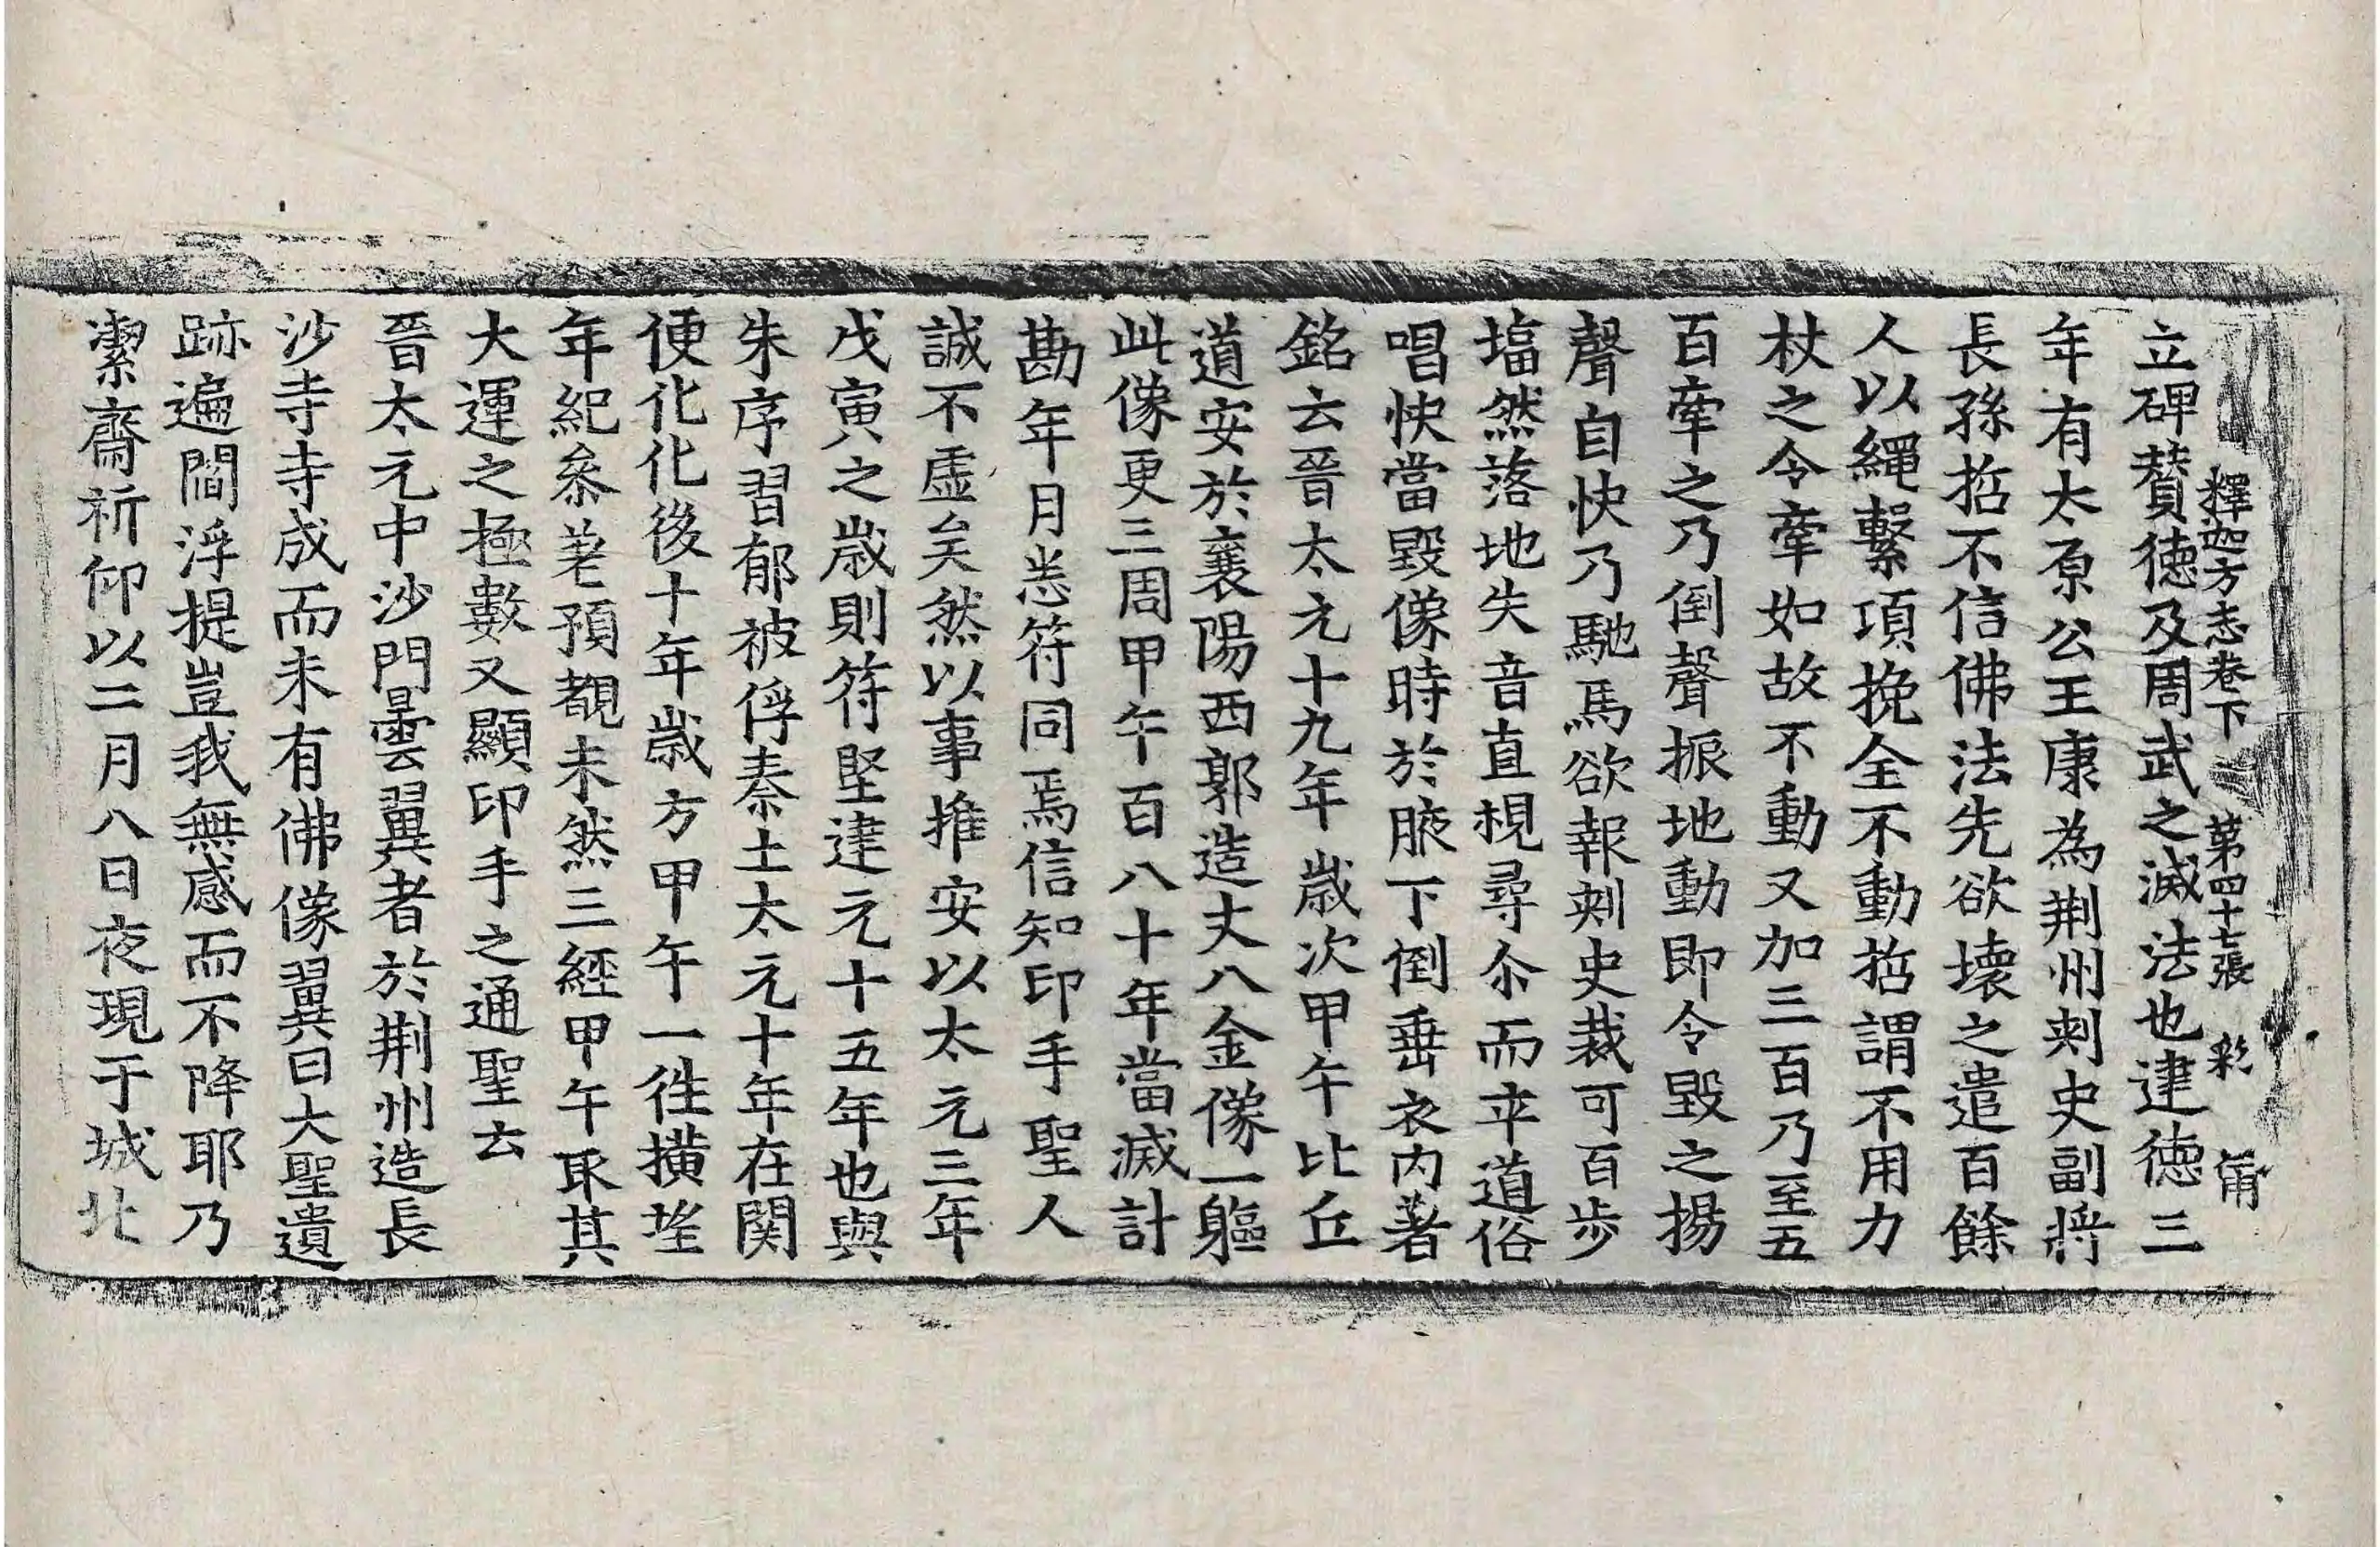 釋迦方志卷下 第四十七張 彩 甫
立碑賛德及周武之滅法也建德三
年有太原公王康為荆州刺史副將
長孫哲不信佛法先欲壞之遣百餘
人以繩繫項挽全不動哲謂不用力
杖之令牽如故不動又加三百乃至五
百牽之乃倒聲振地動即令毀之揚
聲自快乃馳馬欲報刺史裁可百步
塌然落地失音直視尋尒而卒道俗
唱快當毀像時於腋下倒垂衣内著
銘云晉太元十九年歳次甲午比丘
道安於襄陽西郭造丈八金像一軀
此像更三周甲午百八十年當滅計
勘年月悉符同焉信知印手聖人
誠不虚矣然以事推安以太元三年
戊寅之歳則符堅建元十五年也與
朱序習郁被俘秦土太元十年在関
便化化後十年歳方甲午一徃擴望
年紀叅差預覩未然三經甲午取其
大運之極數又顯印手之通聖云
晉太元中沙門曇翼者於荆州造長
沙寺寺成而未有佛像翼曰大聖遺
跡遍閻浮提豈我無感而不降耶乃
潔齋祈仰以二月八日夜現于城北